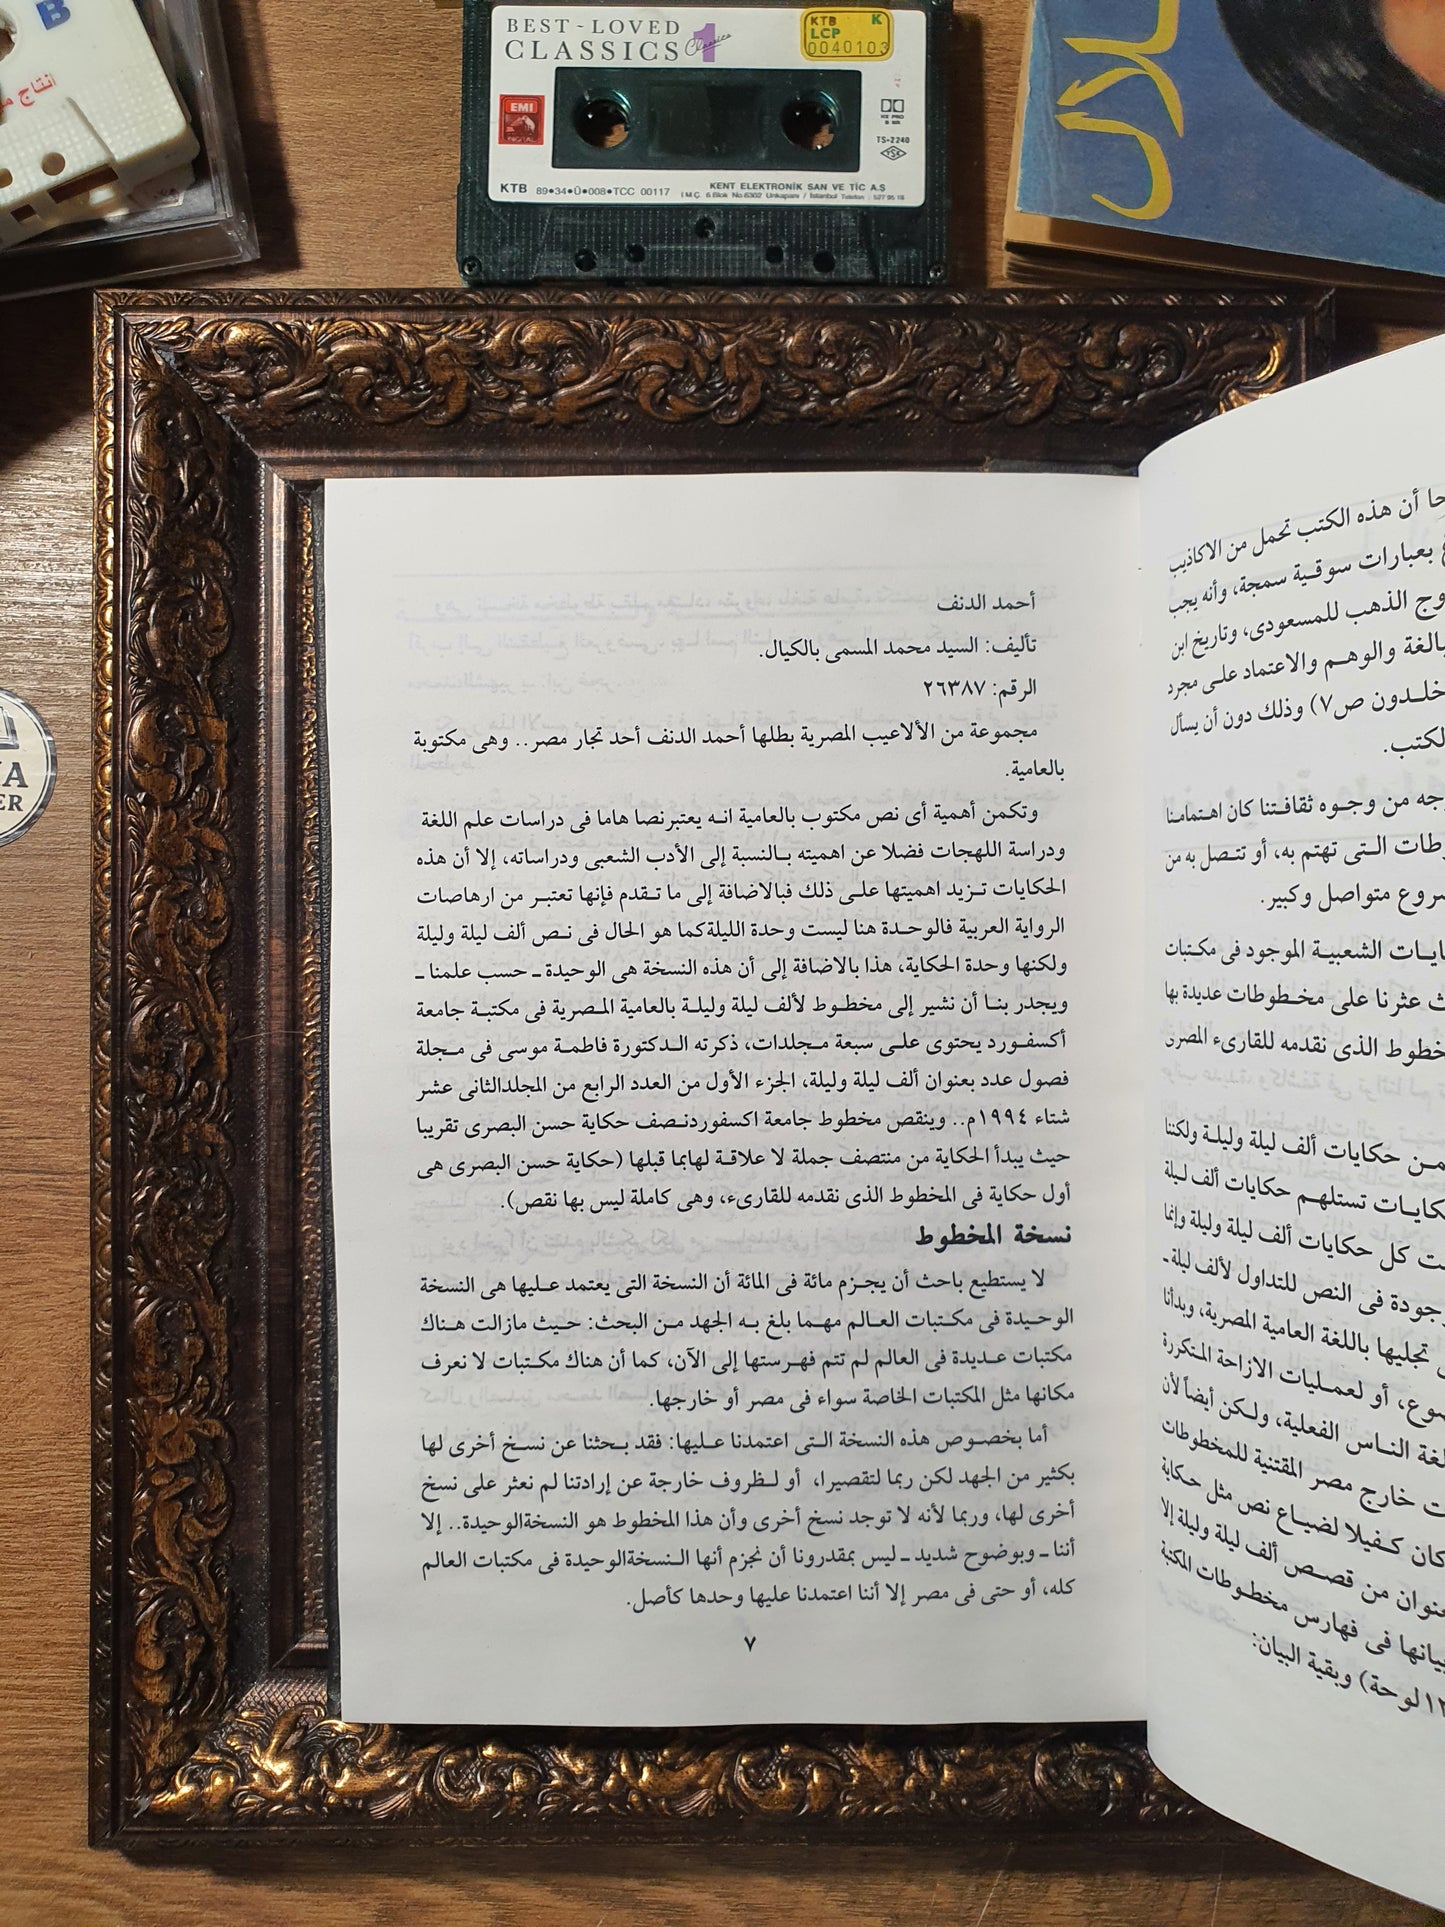 B
انتاج
BEST-LOVED
CLASSICS 1
Classics
KTB K
LCP
0040103
EMI
HX PRO
B NR
TS-2240
YSK
KTB 89•34•Ü•008•TCC 00117
KENT ELEKTRONİK SAN VE TİC A.Ş
İ.M.Ç. 6.Blok No:6302 Unkapanı / İstanbul Telefon : 527 95 18
ER
أن هذه الكتب تحمل من الاكاذيب
بعبارات سوقية سمجة، وأنه يجب
الذهب للمسعودى، وتاريخ ابن
والوهم والاعتماد على مجرد
خلدون ص٧) وذلك دون أن يسأل
من وجوه ثقافتنا كان اهتمامنا
التى تهتم به، أو تتصل به من
متواصل وكبير.
الشعبية الموجود فى مكتبات
عثرنا على مخطوطات عديدة بها
الذى نقدمه للقارىء المصرى
حكايات ألف ليلة وليلة ولكننا
تستلهم حكايات ألف ليلة
كل حكايات ألف ليلة وليلة وإنما
فى النص للتداول لألف ليلة ـ
تجليها باللغة العامية المصرية، وبدأنا
أو لعمليات الازاحة المتكررة
الناس الفعلية، ولكن أيضاً لأن
خارج مصر المقتنية للمخطوطات
كان كفيلا لضياع نص مثل حكاية
من قصص ألف ليلة وليلة إلا
فى فهارس مخطوطات المكتبة
لوحة) وبقية البيان:
أحمد الدنف
تأليف: السيد محمد المسمى بالكيال.
الرقم: ٢٦٣٨٧
مجموعة من الألاعيب المصرية بطلها أحمد الدنف أحد تجار مصر.. وهى مكتوبة
بالعامية.
وتكمن أهمية أى نص مكتوب بالعامية انه يعتبرنصا هاما فى دراسات علم اللغة
ودراسة اللهجات فضلا عن اهميته بالنسبة إلى الأدب الشعبى ودراساته، إلا أن هذه
الحكايات تزيد اهميتها على ذلك فبالاضافة إلى ما تقدم فإنها تعتبر من ارهاصات
الرواية العربية فالوحدة هنا ليست وحدة الليلة كما هو الحال فى نص ألف ليلة وليلة
ولكنها وحدة الحكاية، هذا بالاضافة إلى أن هذه النسخة هى الوحيدة ـ حسب علمنا ـ
ويجدر بنا أن نشير إلى مخطوط لألف ليلة وليلة بالعامية المصرية فى مكتبة جامعة
أكسفورد يحتوى على سبعة مجلدات، ذكرته الدكتورة فاطمة موسى فى مجلة
فصول عدد بعنوان ألف ليلة وليلة، الجزء الأول من العدد الرابع من المجلدالثانى عشر
شتاء ١٩٩٤م.. وينقص مخطوط جامعة اكسفوردنصف حكاية حسن البصرى تقريبا
حيث يبدأ الحكاية من منتصف جملة لا علاقة لهابما قبلها (حكاية حسن البصرى هى
أول حكاية فى المخطوط الذى نقدمه للقارىء، وهى كاملة ليس بها نقص).
نسخة المخطوط
لا يستطيع باحث أن يجزم مائة فى المائة أن النسخة التى يعتمد عليها هى النسخة
الوحيدة فى مكتبات العالم مهما بلغ به الجهد من البحث: حيث مازالت هناك
مكتبات عديدة فى العالم لم تتم فهرستها إلى الآن، كما أن هناك مكتبات لا نعرف
مكانها مثل المكتبات الخاصة سواء فى مصر أو خارجها.
أما بخصوص هذه النسخة التى اعتمدنا عليها: فقد بحثنا عن نسخ أخرى لها
بكثير من الجهد لكن ربما لتقصيرا، أو لظروف خارجة عن إرادتنا لم نعثر على نسخ
أخرى لها، وربما لأنه لا توجد نسخ أخرى وأن هذا المخطوط هو النسخةالوحيدة.. إلا
أننا ـ وبوضوح شديد ـ ليس بمقدرونا أن نجزم أنها النسخةالوحيدة فى مكتبات العالم
كله، أو حتى فى مصر إلا أننا اعتمدنا عليها وحدها كأصل.
٧